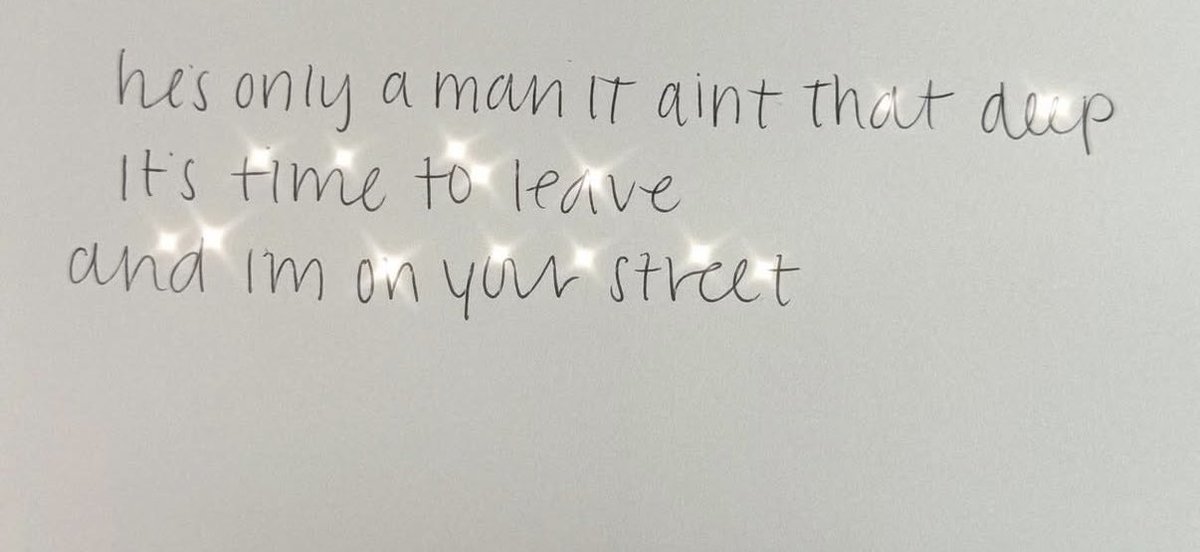 he's only a man IT aint that deep
It's time to leave
and I'm on your street